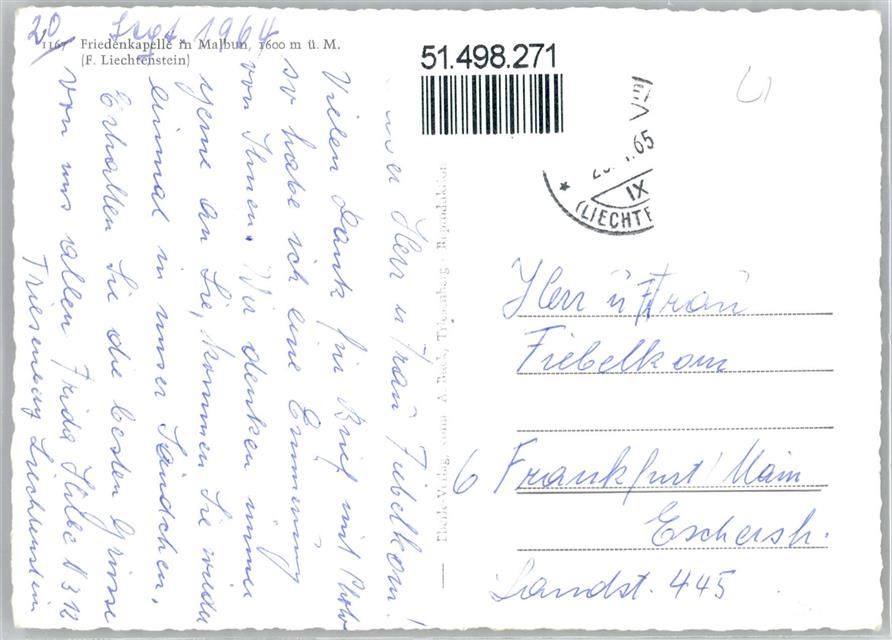 1167 Friedenkapelle in Malbun, 1600 m ü. M.
(F. Liechtenstein)
20 Sept 1964
51.498.271
65
IX
(LIECHTE
Herr u Frau Fiebelkorn!
Vielen Dank für Brief mit Photo
so habe ich eine Erinnerung
von Ihnen. Wir denken immer
gerne an Sie, kommen Sie wieder
einmal in unser Ländchen.
Erhalten Sie die besten Grüsse
von uns allen Frida N 312
Triesenberg Liechtenstein
A. Triesenberg - Reproduktion
Herr u Frau
Fiebelkorn
6 Frankfurt/Main
Eschersh.
Landst. 445